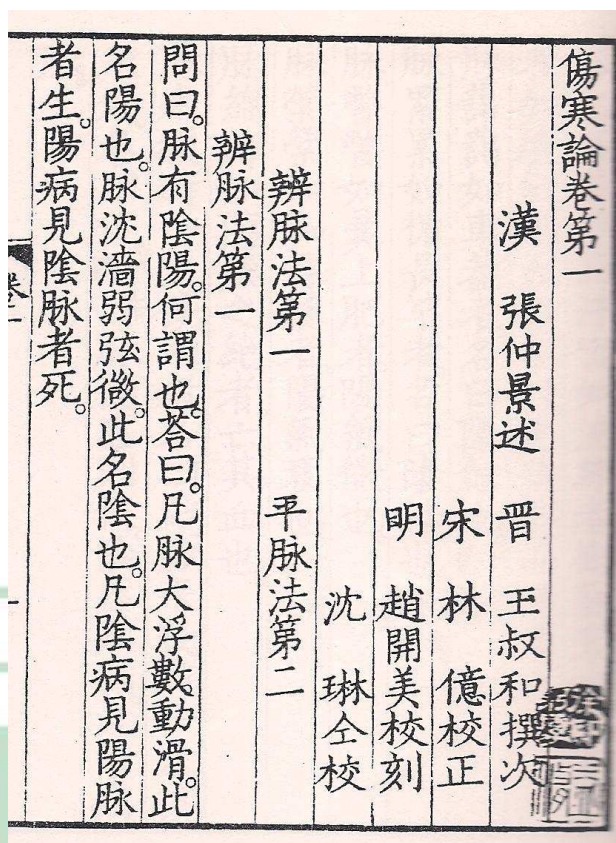 傷寒論卷第一
漢 張仲景述 晋 王叔和撰次
宋 林 億校正
明 趙開美校刻
沈 琳仝校
辨脉法第一 平脉法第二
辨脉法第一
問曰。脉有陰陽。何謂也。荅曰。凡脉大浮數動滑。此
名陽也。脉沈濇弱弦微。此名陰也。凡陰病見陽脉
者生。陽病見陰脉者死。
卷一
一